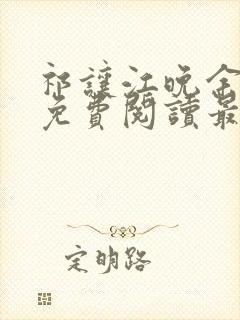 祁讓江晚全
免費閱讀最
定明路